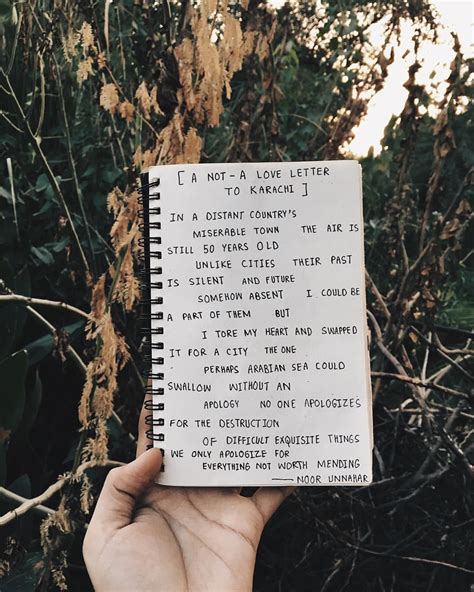 [ A NOT-A LOVE LETTER
TO KARACHI ]
IN A DISTANT COUNTRY'S
MISERABLE TOWN THE AIR IS
STILL 50 YEARS OLD
UNLIKE CITIES THEIR PAST
IS SILENT AND FUTURE
SOMEHOW ABSENT I COULD BE
A PART OF THEM BUT
I TORE MY HEART AND SWAPPED
IT FOR A CITY THE ONE
PERHAPS ARABIAN SEA COULD
SWALLOW WITHOUT AN
APOLOGY NO ONE APOLOGIZES
FOR THE DESTRUCTION
OF DIFFICULT EXQUISITE THINGS
WE ONLY APOLOGIZE FOR
EVERYTHING NOT WORTH MENDING
—NOOR UNNAHAR